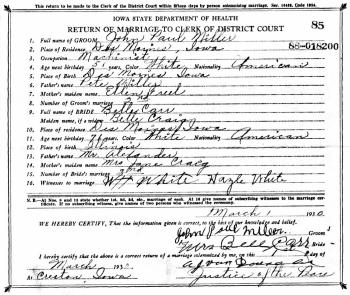 This return to be made to the Clerk of the District Court within fifteen days by person solemnizing marriage. Sec. 10436, Code 1924.
IOWA STATE DEPARTMENT OF HEALTH
RETURN OF MARRIAGE TO CLERK OF DISTRICT COURT
85
1. Full name of GROOM John Paul Miller
88-018200
2. Place of Residence Des Moines, Iowa
3. Occupation Machinist
4. Age next birthday 51 years, Color White Nationality American
5. Place of Birth Des Moines Iowa
6. Father's name Pete Miller
7. Mother's maiden name Ellen
8. Number of Groom's marriage 2nd
9. Full name of BRIDE Belle Carr
Maiden name, if a widow Belle Craig
10. Place of residence Des Moines Iowa
11. Age next birthday years, Color White Nationality American
12. Place of Birth Illinois
13. Father's name Mr. Alexander
14. Mother's maiden name Mrs Jane Craig
15. Number of Bride's marriage 2nd
16. Witnesses to marriage White Hazle White
N. B.—At Nos. 8 and 15 state whether 1st, 2d, 3d, 4th, etc., marriage of each. At 16 give names of subscribing witnesses to the marriage certificate. If no subscribing witnesses, give names of two persons who witnessed the ceremony.
March 1 1930.
WE HEREBY CERTIFY, That the information given is correct, to the best of our knowledge and belief.
John Paul Miller Groom
Mrs Belle Carr Bride
I hereby certify that the above is a correct return of a marriage solemnized by me, on this day of
March 1930.
At Creston, Iowa Justice of the Peace